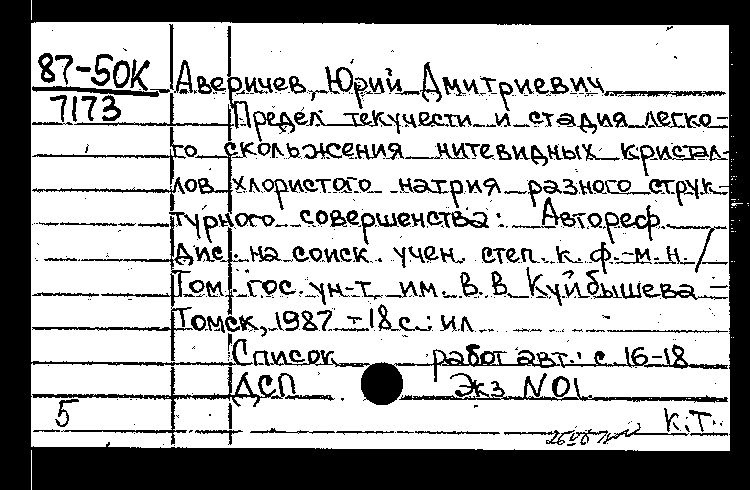 87-50К
7173
Аверичев, Юрий Дмитриевич
Предел текучести и стадия легко-
го скольжения нитевидных кристал-
лов хлористого натрия разного струк-
турного совершенства: Автореф.
Дис. на соиск. учен. степ. к. ф.-м. н. /
Том. гос. ун-т им. В. В. Куйбышева -
Томск, 1987 - 18 с.: ил
Список работ авт.: с. 16-18
ДСП Экз N 01
5
К.Т.